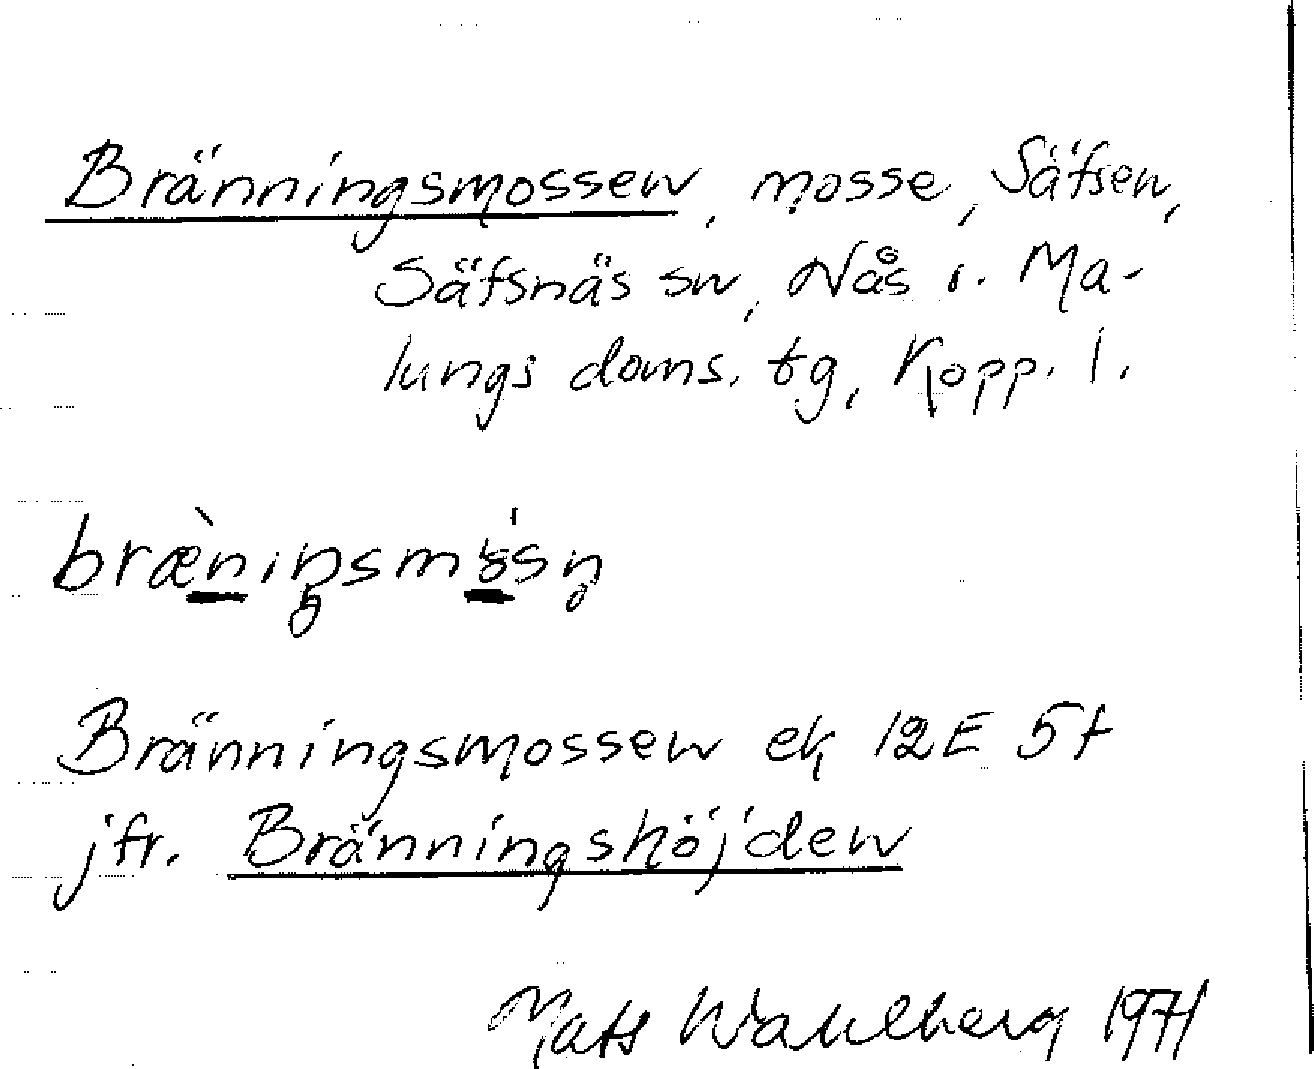 Bränningsmossen, mosse, Säfsen,
Säfsnäs sn, Nås o. Ma-
lungs doms. tg, Kopp. l.
bræ̀niŋsmɷ́sn̥
Bränningsmossen ek 12E 5f
jfr. Bränningshöjden
Mats Wahlberg 1971